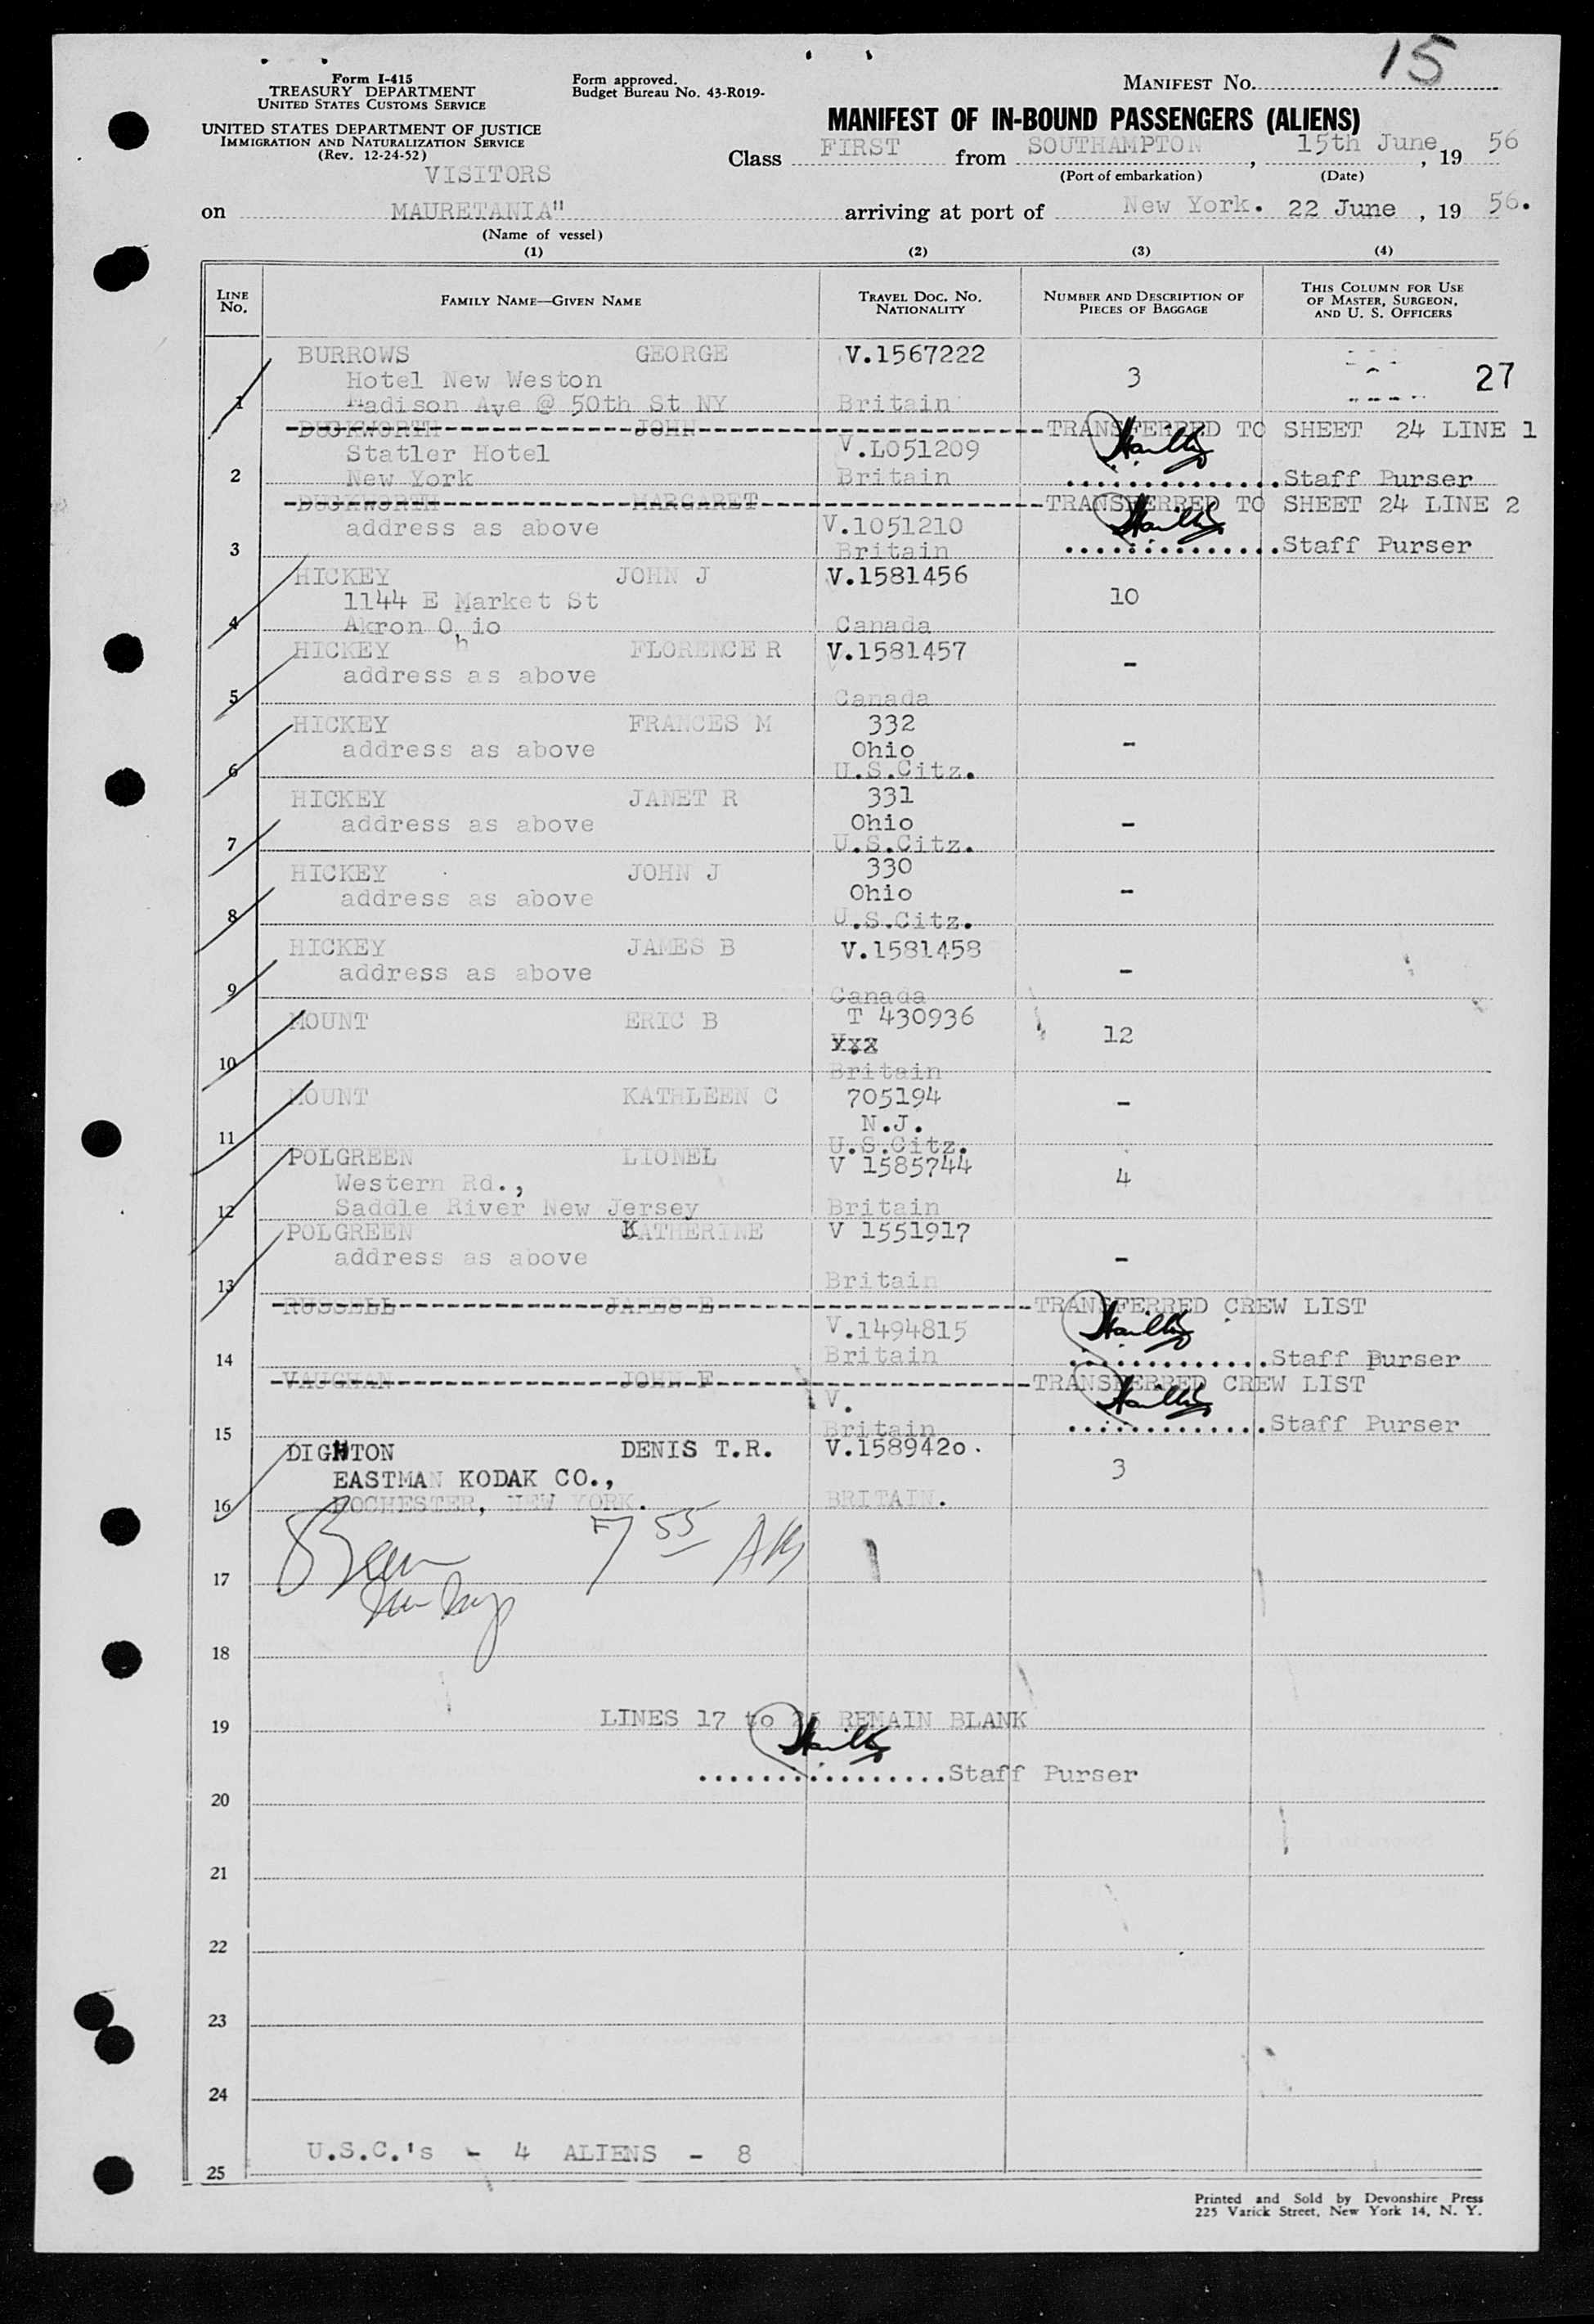 15
Form I-415
TREASURY DEPARTMENT
UNITED STATES CUSTOMS SERVICE
UNITED STATES DEPARTMENT OF JUSTICE
IMMIGRATION AND NATURALIZATION SERVICE
(Rev. 12-24-52)
VISITORS
Form approved.
Budget Bureau No. 43-R019-
MANIFEST No.
MANIFEST OF IN-BOUND PASSENGERS (ALIENS)
Class FIRST from SOUTHAMPTON, 15th June, 19 56
(Port of embarkation) (Date)
on MAURETANIA" arriving at port of New York. 22 June, 19 56.
(Name of vessel)
(1) (2) (3) (4)
LINE No. FAMILY NAME—GIVEN NAME TRAVEL DOC. NO. NATIONALITY NUMBER AND DESCRIPTION OF PIECES OF BAGGAGE THIS COLUMN FOR USE OF MASTER, SURGEON, AND U. S. OFFICERS
BURROWS GEORGE V.1567222
Hotel New Weston 3 27
1 Madison Ave @ 50th St NY Britain
DUCKWORTH JOHN TRANSFERRED TO SHEET 24 LINE 1
Statler Hotel V.L051209
2 New York Britain Staff Purser
DUCKWORTH MARGARET TRANSFERRED TO SHEET 24 LINE 2
address as above V.1051210
3 Britain Staff Purser
HICKEY JOHN J V.1581456
1144 E Market St 10
4 Akron Ohio Canada
HICKEY FLORENCE R V.1581457
address as above -
5 Canada
HICKEY FRANCES M 332
address as above Ohio -
6 U.S.Citz.
HICKEY JANET R 331
address as above Ohio -
7 U.S.Citz.
HICKEY JOHN J 330
address as above Ohio -
8 U.S.Citz.
HICKEY JAMES B V.1581458
address as above -
9 Canada
MOUNT ERIC B T 430936
xxx 12
10 Britain
MOUNT KATHLEEN C 705194 -
N.J.
11 U.S.Citz.
POLGREEN LIONEL V 1585744
Western Rd., 4
12 Saddle River New Jersey Britain
POLGREEN KATHERINE V 1551917
address as above -
13 Britain
RUSSELL JAMES E TRANSFERRED CREW LIST
V.1494815
14 Britain Staff Purser
VAUGHAN JOHN F TRANSFERRED CREW LIST
V.
15 Britain Staff Purser
DIGHTON DENIS T.R. V.1589420.
EASTMAN KODAK CO., 3
16 ROCHESTER, NEW YORK. BRITAIN.
7 55
17
18
19 LINES 17 to 25 REMAIN BLANK
Staff Purser
20
21
22
23
24
U.S.C.'s - 4 ALIENS - 8
25
Printed and Sold by Devonshire Press
225 Varick Street, New York 14, N. Y.